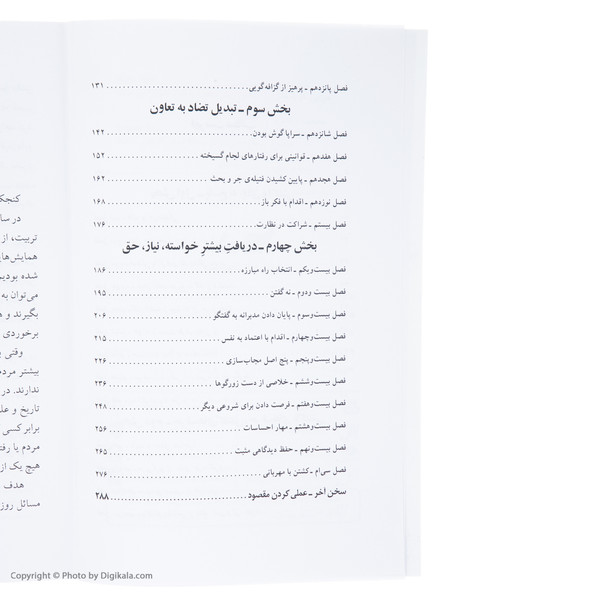 فصل پانزدهم ـ پرهیز از گزافه‌گویی ........ ۱۳۱
بخش سوم ـ تبدیل تضاد به تعاون
فصل شانزدهم ـ سراپا گوش بودن ........ ۱۴۲
فصل هفدهم ـ قوانینی برای رفتارهای لجام گسیخته ........ ۱۵۲
فصل هجدهم ـ پایین کشیدن فتیله‌ی جر و بحث ........ ۱۶۲
فصل نوزدهم ـ اقدام با فکر باز ........ ۱۶۸
فصل بیستم ـ شراکت در نظارت ........ ۱۷۶
بخش چهارم ـ دریافتِ بیشترِ خواسته، نیاز، حق
فصل بیست‌ویکم ـ انتخاب راه مبارزه ........ ۱۸۶
فصل بیست ودوم ـ نه گفتن ........ ۱۹۵
فصل بیست‌وسوم ـ پایان دادن مدبرانه به گفتگو ........ ۲۰۶
فصل بیست‌وچهارم ـ اقدام با اعتماد به نفس ........ ۲۱۵
فصل بیست‌وپنجم ـ پنج اصل مجاب‌سازی ........ ۲۲۶
فصل بیست‌وششم ـ خلاصی از دست زورگوها ........ ۲۳۶
فصل بیست‌وهفتم ـ فرصت دادن برای شروعی دیگر ........ ۲۴۸
فصل بیست‌وهشتم ـ مهار احساسات ........ ۲۵۶
فصل بیست‌ونهم ـ حفظ دیدگاهی مثبت ........ ۲۶۵
فصل سی‌اُم ـ کشتن با مهربانی ........ ۲۷۶
سخن آخر ـ عملی کردن مقصود ........ ۲۸۸
در سا
تربیت، از
همایش‌های
شده بودیم
می‌توان به
بگیرند و ه
برخوردی
وقتی
بیشتر مردم
ندارند. در
تاریخ و عل
برابر کسی
مردم یا رفت
هیچ یک از
هدف
مسائل روز
Copyright © Photo by Digikala.com